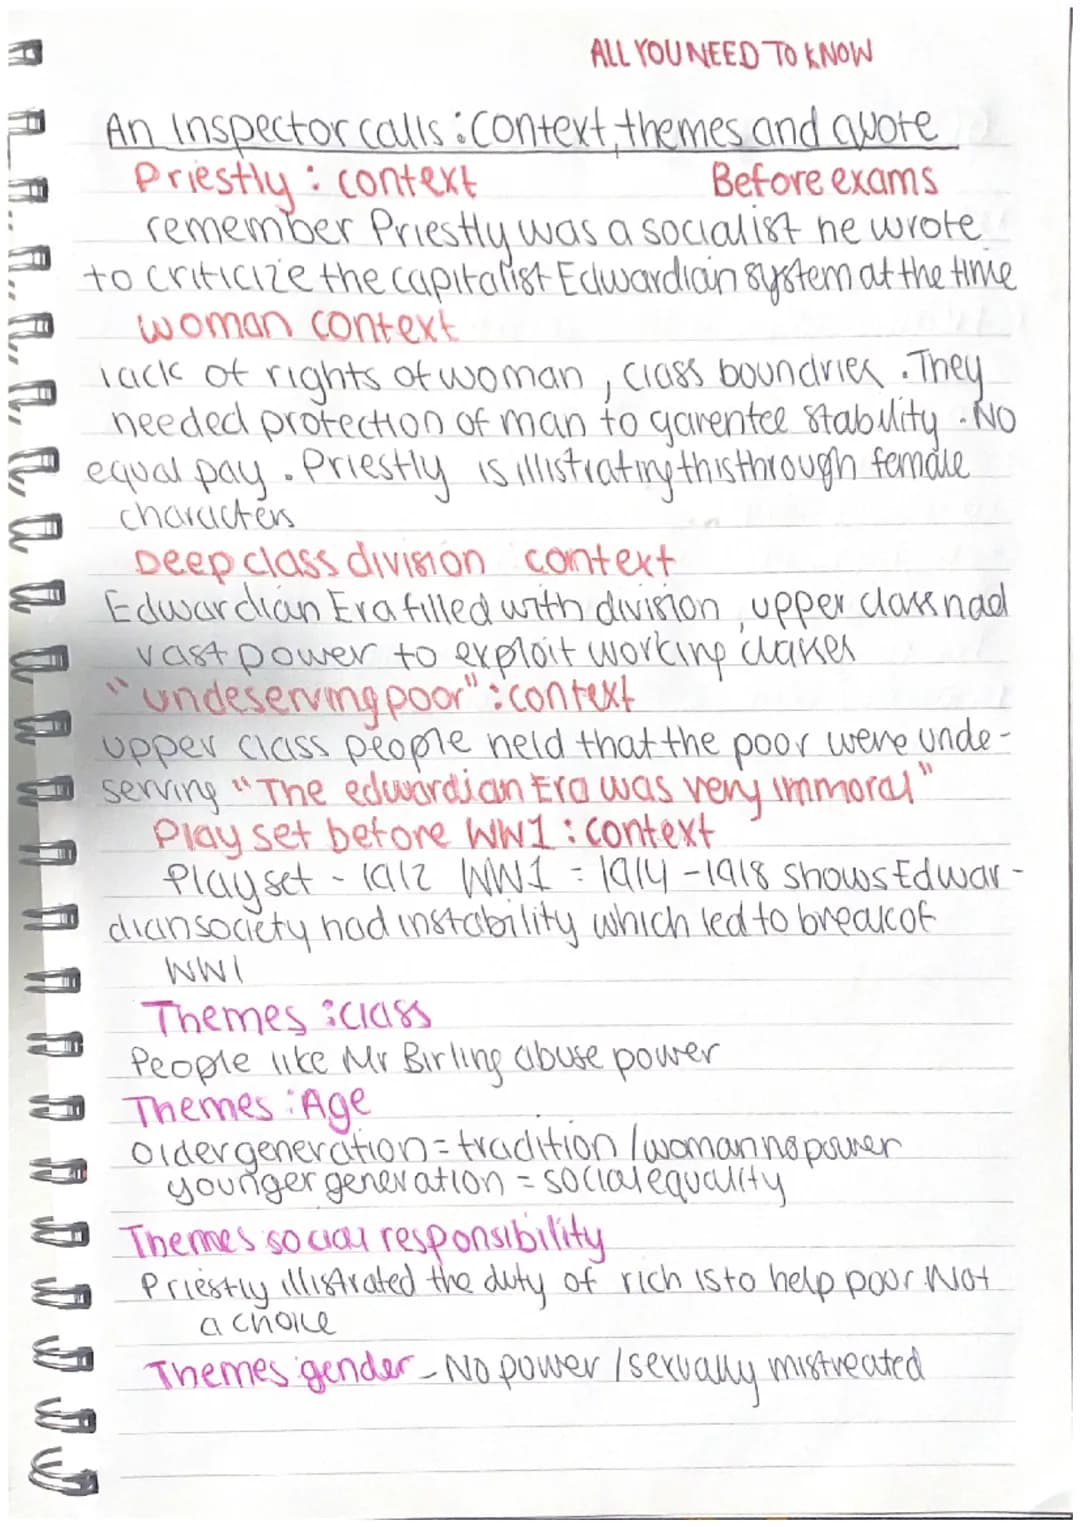 ALL YOU NEED TO KNOW
An Inspector calls : context, themes and quote
Priestly : context
Before exams
remember Priestly was a socialist he wrote
to criticize the capitalist Edwardian system at the time
woman context
lack of rights of woman , class boundries . They
needed protection of man to garentee stability . No
equal pay . Priestly is illistrating this through female
characters
Deep class division context
Edwardian Era filled with division , upper class had
vast power to exploit working classes
"undeserving poor" : context
upper class people held that the poor were unde-
serving "The edwardian Era was very immoral"
Play set before WW1 : context
Play set - 1912 WW1 = 1914 - 1918 shows Edwar-
dian society had instability which led to break of
WW1
Themes : class
People like Mr Birling abuse power
Themes : Age
older generation = tradition / woman no power
younger generation = social equality
Themes social responsibility
Priestly illistrated the duty of rich is to help poor Not
a choice
Themes gender - No power / sexually mistreated